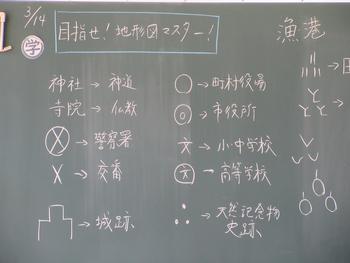 3/14
学
目指せ!地形図マスター!
漁港
神社→神道
寺院→仏教
→警察署
→交番
→城跡
→町村役場
→市役所
文→小中学校
文→高等学校
→天然記念物
史跡